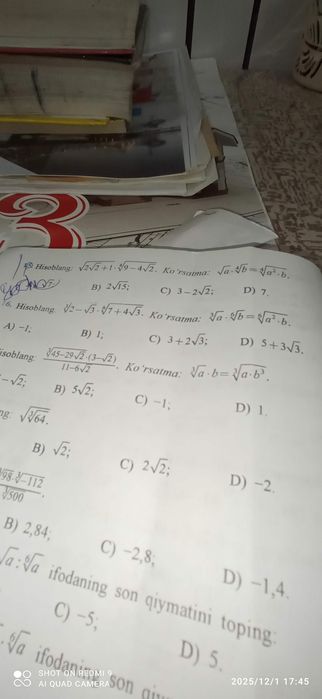 33
Hisoblang: √(2√2+1) · ⁴√(9−4√2). Ko'rsatma: √a · ⁴√b = ⁴√(a²·b).
B) 2√15; C) 3−2√2; D) 7.
6. Hisoblang: ³√(2−√3) · ⁶√(7+4√3). Ko'rsatma: ³√a · ⁶√b = ⁶√(a²·b).
A) −1; B) 1; C) 3+2√3; D) 5+3√3.
isoblang: ³√(45−29√2)·(3−√2) / (11−6√2). Ko'rsatma: ³√a · b = ³√(a·b³).
−√2; B) 5√2; C) −1; D) 1.
ng: √(³√64).
B) √2; C) 2√2; D) −2.
98 · ³√−112 / ³√500.
B) 2,84; C) −2,8; D) −1,4.
√a : ⁶√a ifodaning son qiymatini toping:
C) −5; D) 5.
⁶√a ifodaning son
SHOT ON REDMI 9
AI QUAD CAMERA
2025/12/1 17:45